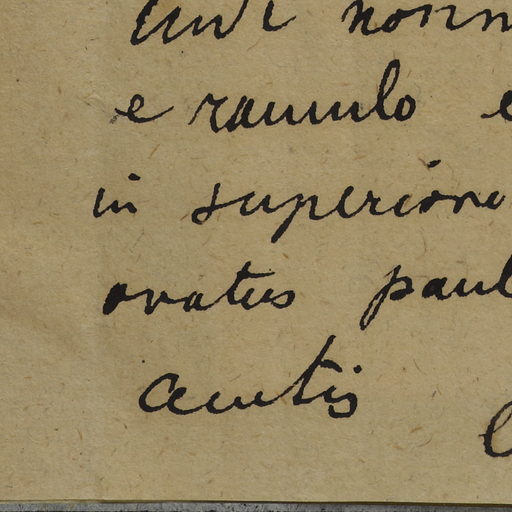 nonn
e ramulo e
in superiore
ovatus paul
acutis